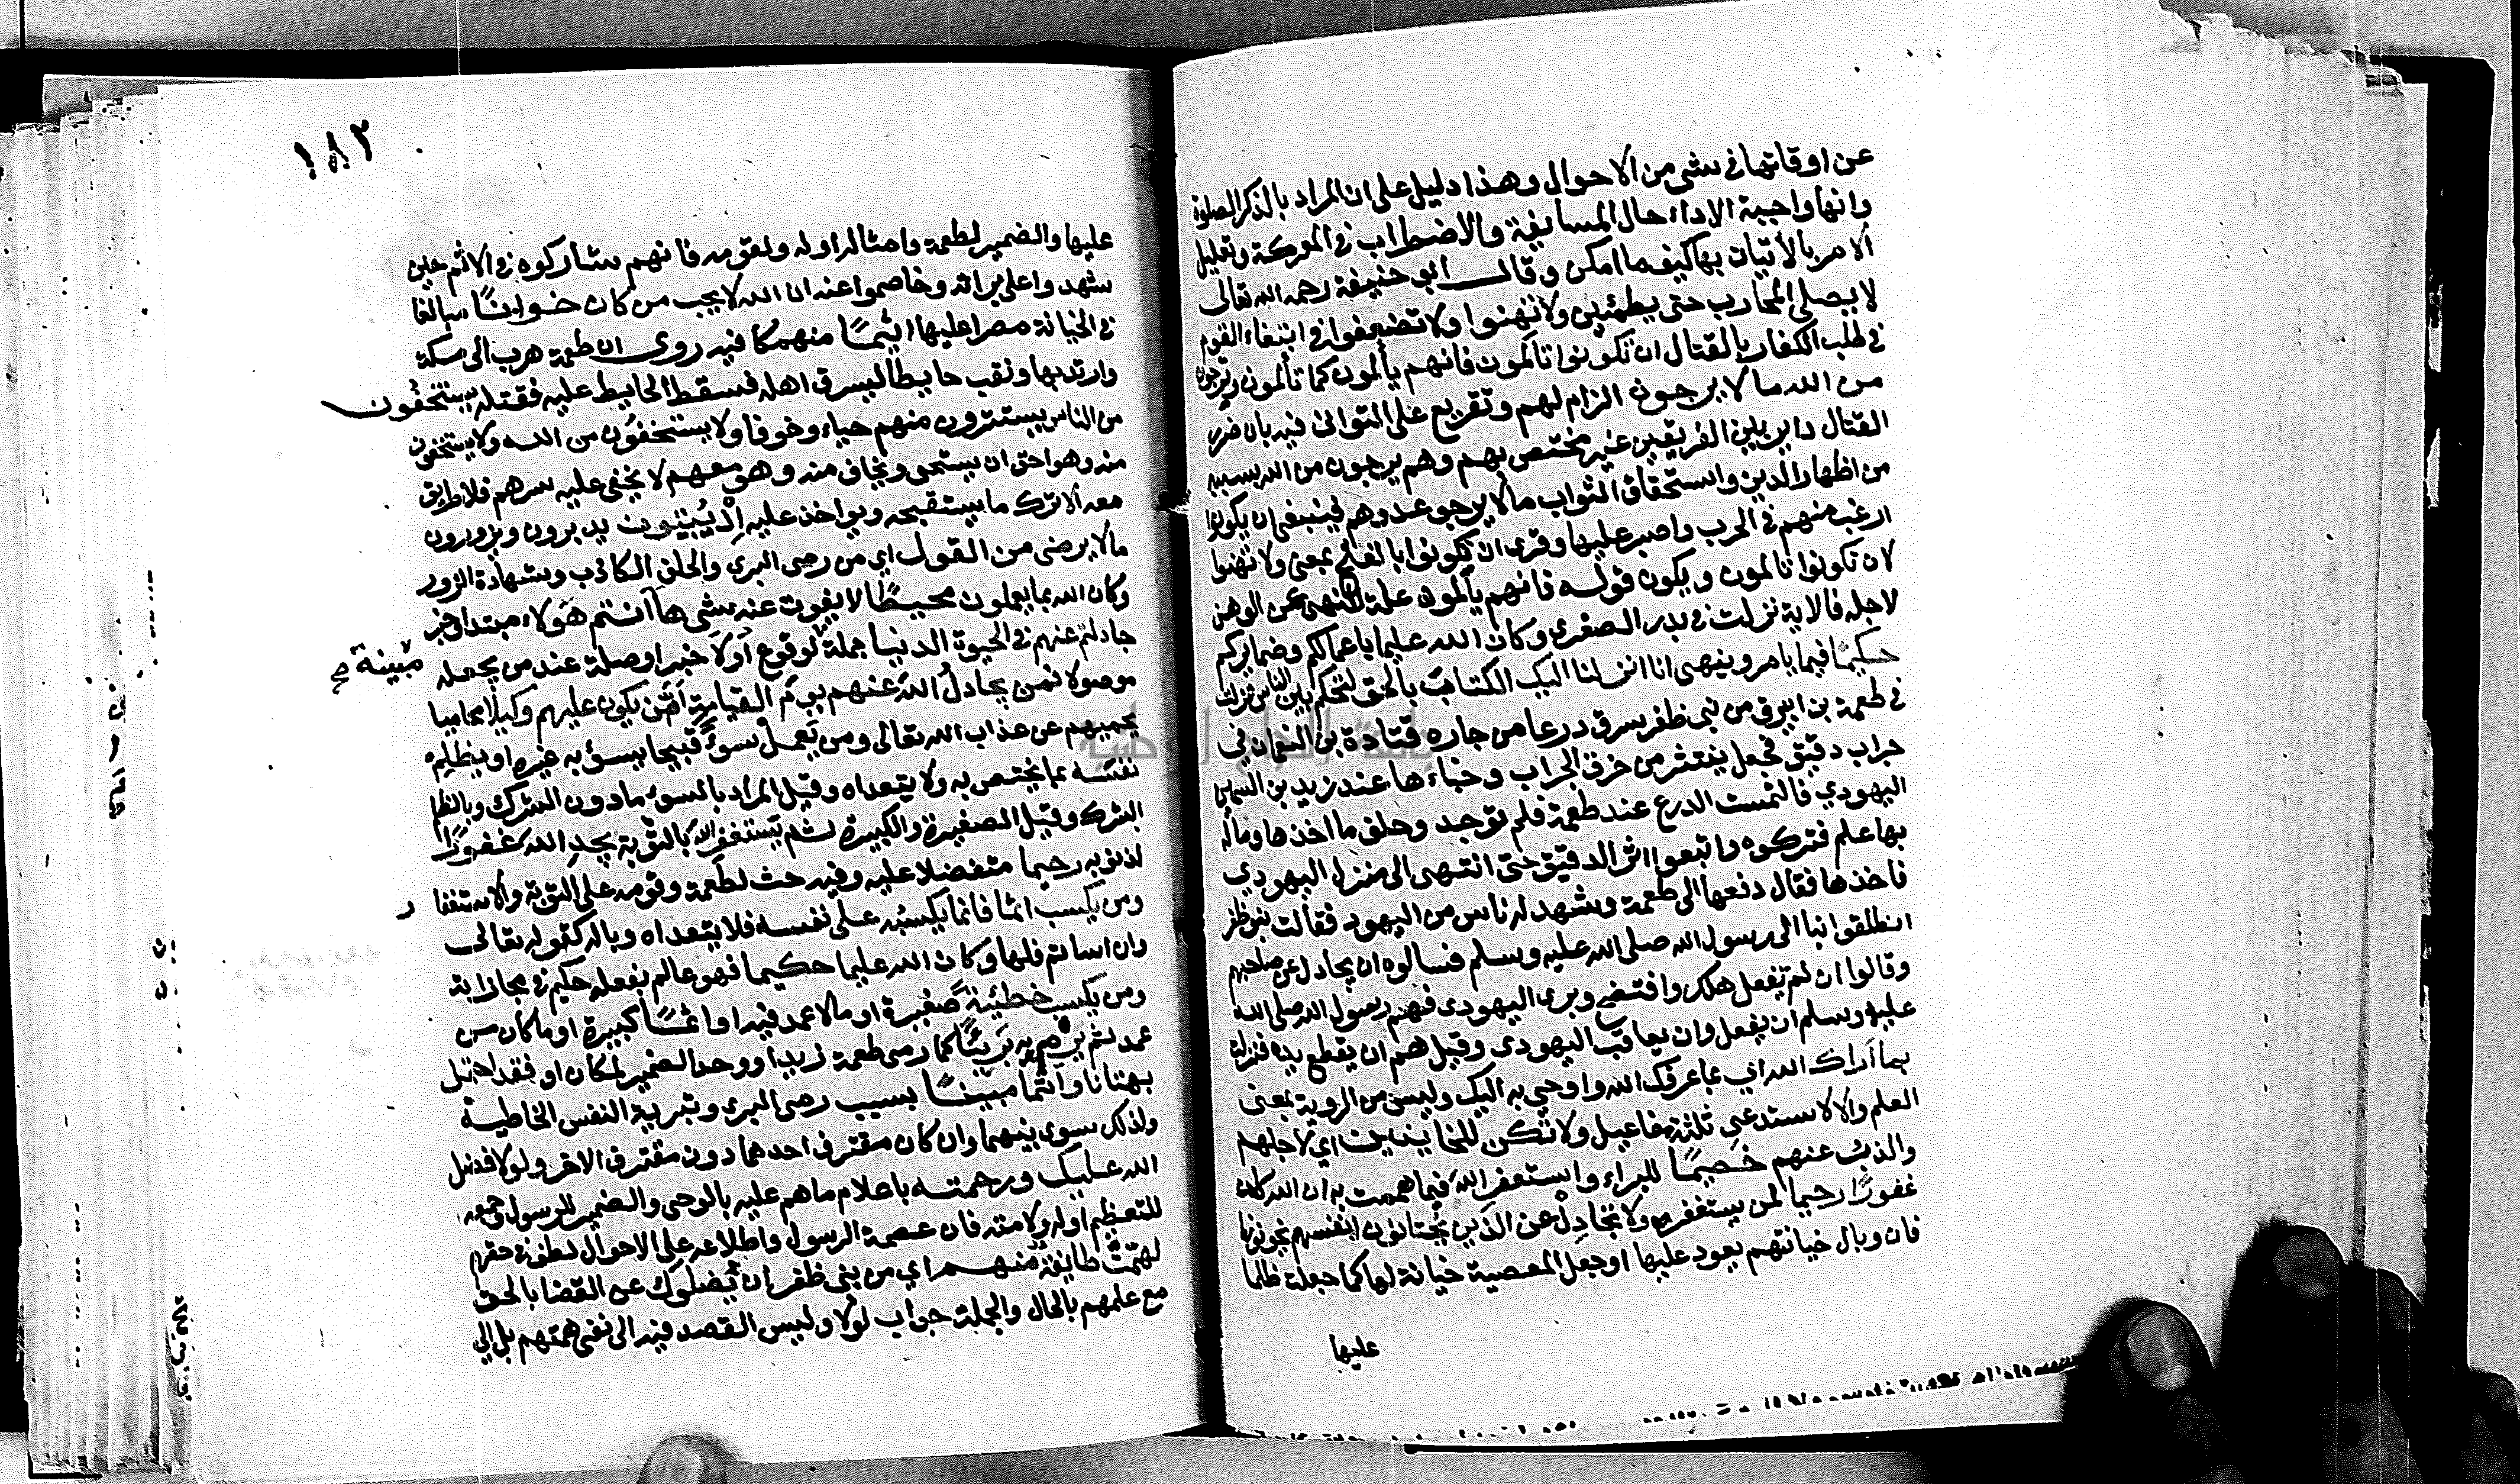 عن اوقاتها في شي من الاحوال وهذا دليل على ان المراد بالذكر الصلوة
وانها واجبة الاداء حال المسايفة والاضطراب في المعركة وتعليل
الامر بالاتيان بها كيفما امكن وقال ابو حنيفة رحمه الله تعالى
لا يصلي المحارب حتى يطمئن ولا تهنوا ولا تضعفوا في ابتغاء القوم
في طلب الكفار بالقتال ان تكونوا تالمون فانهم يألمون كما تألمون وترجون
من الله ما لا يرجون الزام لهم وتقريع على التواني فيه بان ضرر
القتال داير بين الفريقين غير مختص بهم وهم يرجون من الله بسببه
من اظهار الدين واستحقاق الثواب ما لا يرجو عدوهم فينبغي ان يكونوا
ارغب منهم في الحرب واصبر عليها وقرى ان تكونوا بالفتح بمعنى ولا تهنوا
لان تكونوا تالمون ويكون قوله فانهم يألمون علة للنهي عن الوهن
لاجله فالاية نزلت في بدر الصغرى وكان الله عليما باعمالكم وضمايركم
حكيمًا فيما يامر وينهى انا انزلنا اليك الكتاب بالحق لتحكم بين الناس نزلت
في طعمة بن ابيرق من بني ظفر سرق درعا من جاره قتادة بن النعمان في
جراب دقيق فجعل ينتثر من خرق الجراب وخباءها عند زيد بن السمين
اليهودي فالتمست الدرع عند طعمة فلم توجد وحلف ما اخذها وماله
بها علم فتركوه واتبعوا اثر الدقيق حتى انتهى الى منزل اليهودي
فاخذها فقال دفعها الى طعمة وشهد له ناس من اليهود فقالت بنو ظفر
انطلقوا بنا الى رسول الله صلى الله عليه وسلم فسالوه ان يجادل عن صاحبهم
وقالوا ان لم تفعل هلك وافتضح وبرى اليهودى فهم رسول الله صلى الله
عليه وسلم ان يفعل وان يعاقب اليهودى وقيل هم ان يقطع يده فنزلت
بما أراك الله اي بما عرفك الله واوحي به اليك وليس من الروية بمعنى
العلم والا لاستدعى ثلثة مفاعيل ولا تكن للخاينين اي لاجلهم
والذب عنهم خصيمًا للبراء واستغفر الله فيما هممت به ان الله كان
غفورًا رحيما لمن يستغفره ولا تجادل عن الذين يختانون انفسهم يخونونها
فان وبال خيانتهم يعود عليها او جعل المعصية خيانة لها كما جعلت ظلما
عليها
١٨٣
عليها والضمير لطعمة وامثاله او له ولقومه فانهم شاركوه في الاثم حين
شهدوا على براته وخاصموا عنه ان الله لا يحب من كان خوانًا مبالغا
في الخيانة مصرا عليها اثيمًا منهمكا فيه روى ان طعمة هرب الى مكة
وارتد بها ونقب حايطا ليسرق اهله فسقط الحايط عليه فقتله يستخفون
من الناس يستترون منهم حياء وخوفا ولا يستخفون من الله ولا يستخفون
منه وهو احق ان يستحى ويخاف منه وهو معهم لا يخفى عليه سرهم فلا طريق
معه الا ترك ما يستقبحه ويواخذ عليه إذ يُبيّتون يدبرون ويزورون
مالا يرضى من القول اي من رمى البرى والحلف الكاذب وشهادة الزور
وكان الله بما يعملون محيطًا لا يفوت عنه شى ها أنتم هؤلاء مبتدا وخبر
جادلتم عنهم في الحيوة الدنيا جملة لوقوع أولاء خبرا وصلة عند من يجعله
مبينة صح
موصولا فمن يجادل الله عنهم يوم القيامة أمّن يكون عليهم وكيلًا محاميا
يحميهم عن عذاب الله تعالى ومن يعمل سوءً قبيحا يسؤ به غيره او يظلم
نفسه بما يختص به ولا يتعداه وقيل المراد بالسوء ما دون الشرك وبالظلم
الشرك وقيل الصغيرة والكبيرة ثم يستغفر الله بالتوبة يجد الله غفورًا
لذنوبه رحيما متفضلا عليه وفيه حث لطعمة وقومه على التوبة والاستغفا
ر
ومن يكسب اثما فانما يكسبه على نفسه فلا يتعداه وباله كقوله تعالى
وان اساتم فلها وكان الله عليما حكيما فهو عالم بفعله حكيم في مجازاته
ومن يكسب خطيئة صغيرة او مالا عمد فيه او اثمًا كبيرة او ما كان من
عمد ثم يرم به بريئًا كما رمى طعمة زيدا ووحد الضمير لمكان او فقد احتمل
بهتانا واثما مبينًا بسبب رمى البرى وتبرية النفس الخاطية
ولذلك سوى بينهما وان كان مقترف احدهما دون مقترف الاخر ولولا فضل
الله عليك ورحمته باعلام ما هم عليه بالوحى والضمير للرسول وجمعه
للتعظيم او له ولامته فان عصمة الرسول واطلاعه على الاحوال لطف في حقهم
لهمّت طايفة منهم اي من بني ظفر ان يُضلوك عن القضا بالحق
مع علمهم بالحال والجملة جواب لولا وليس القصد فيه الى نفى همتهم بل الى